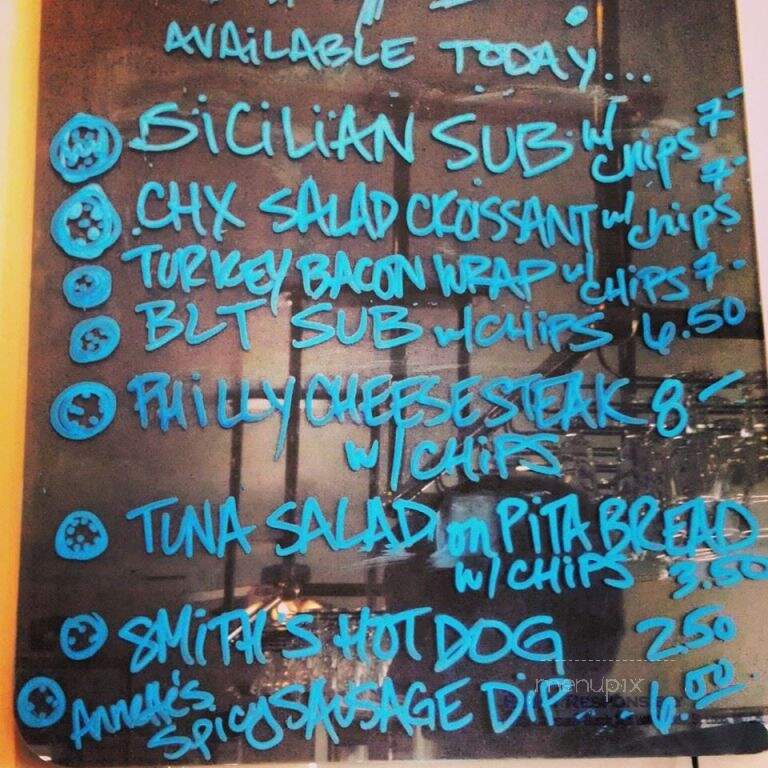 AVAILABLE TODAY...
SICILIAN SUB w/ chips 7-
CHX SALAD CROISSANT w/ chips 7-
TURKEY BACON WRAP w/ CHIPS 7-
BLT SUB w/CHIPS 6.50
PHILLY CHEESESTEAK 8-
w/CHIPS
TUNA SALAD on PITA BREAD
w/CHIPS 3.50
SMITH'S HOT DOG 2.50
Annette's Spicy SAUSAGE DIP... 6.00
menupix